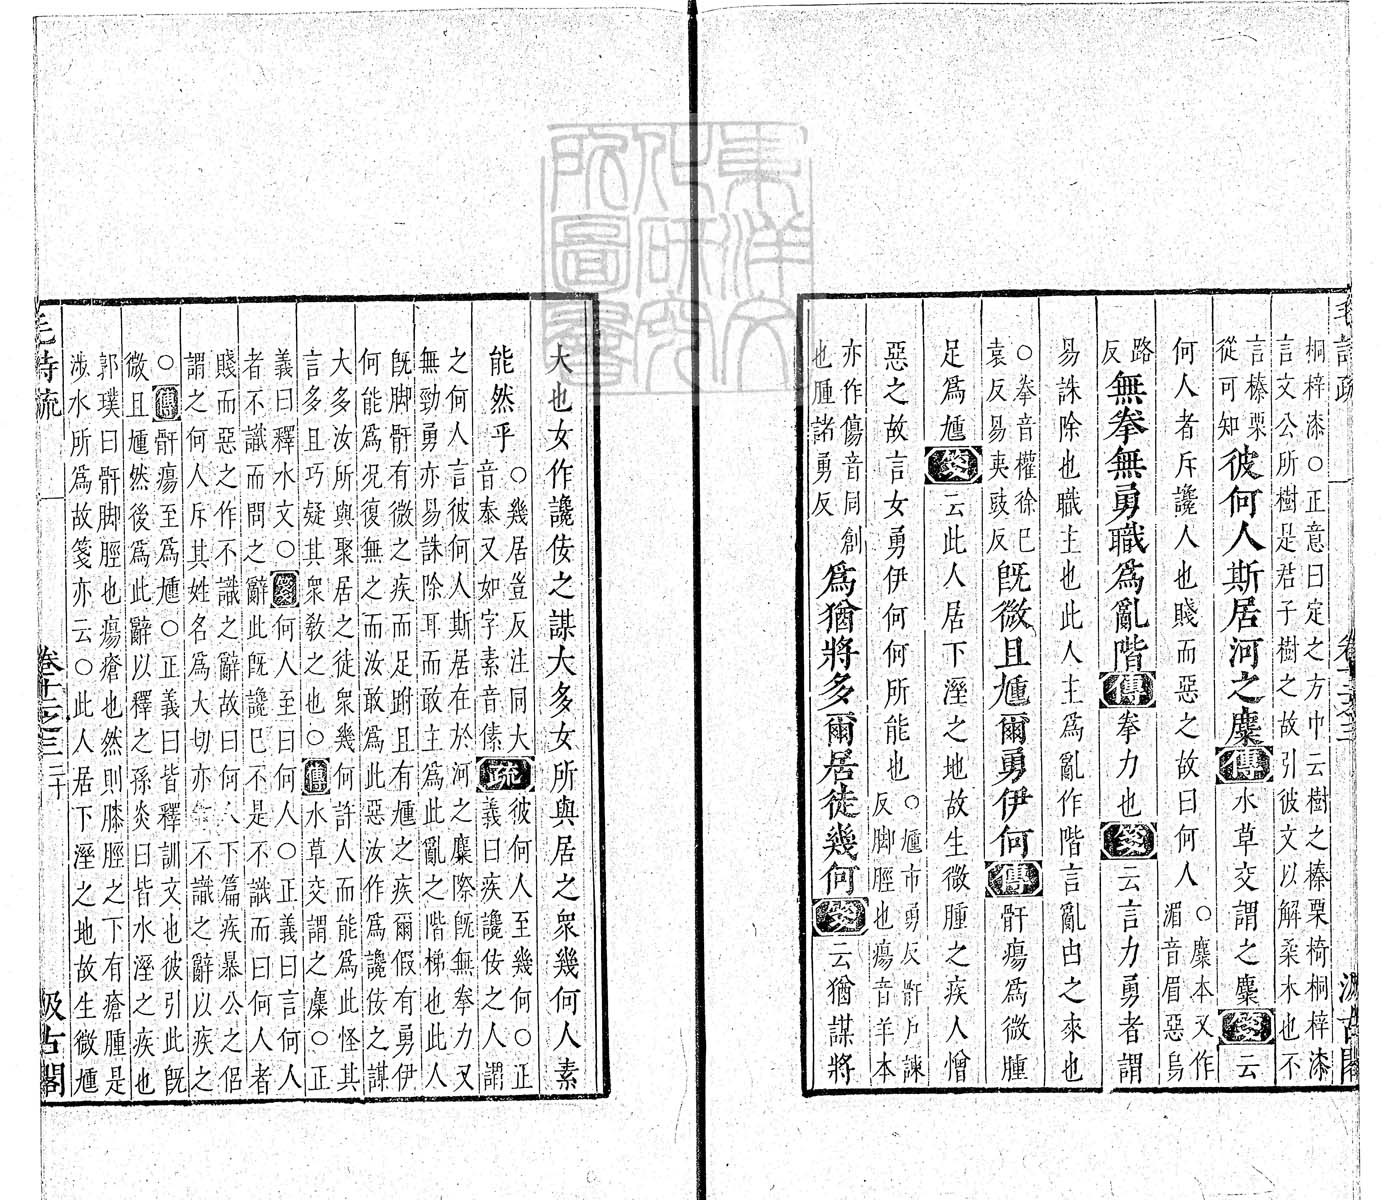 毛詩疏
卷十二之三
汲古閣
桐梓漆○正意曰定之方中云樹之榛栗椅桐梓漆
言文公所樹是君子樹之故引彼文以解柔木也不
言榛栗
從可知
彼何人斯居河之麋傳水草交謂之麋箋云
何人者斥讒人也賤而惡之故曰何人
○麋本又作
湄音眉惡烏
路
反
無拳無勇職爲亂階傳拳力也箋云言力勇者謂
易誅除也職主也此人主爲亂作階言亂由之來也
○拳音權徐巳
袁反易夷豉反
旣微且尰爾勇伊何傳骭瘍爲微腫
足爲尰箋云此人居下溼之地故生微腫之疾人憎
惡之故言女勇伊何何所能也
○尰市勇反骭戶諫
反脚脛也瘍音羊本
亦作傷音同創
也腫諸勇反
爲猶將多爾居徒幾何箋云猶謀將
大也女作讒佞之謀大多女所與居之衆幾何人素
能然乎
○幾居豈反注同大
音泰又如字素音傃
疏
彼何人至幾何○正
義曰疾讒佞之人謂
之何人言彼何人斯居在於河之麋際旣無拳力又
無勁勇亦易誅除耳而敢主爲此亂之階梯也此人
旣脚骭有微之疾而足跗且有尰之疾爾假有勇伊
何能爲況復無之而汝敢爲此惡汝作爲讒佞之謀
大多汝所與聚居之徒衆幾何許人而能爲此怪其
言多且巧疑其衆敎之也○傳水草交謂之麋○正
義曰釋水文○箋何人至曰何人○正義曰言何人
者不識而問之辭此旣讒巳不是不識而曰何人者
賤而惡之作不識之辭故曰何人下篇疾暴公之侣
謂之何人斥其姓名爲大切亦作不識之辭以疾之
○傳骭瘍至爲尰○正義曰皆釋訓文也彼引此旣
微且尰然後爲此辭以釋之孫炎曰皆水溼之疾也
郭璞曰骭脚脛也瘍瘡也然則膝脛之下有瘡腫是
涉水所爲故箋亦云○此人居下溼之地故生微尰
毛詩疏
卷十二之三
二十
汲古閣